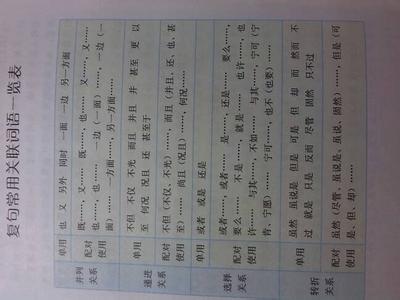 复句常用关联词语一览表
并列关系
单用
也 又 另外 同时 一面 一边 另一方面
配对使用
既……，又…… 既……，也…… 又……，又……
也……，也…… 一边（一面）……，一边（一面）…… 一方面……，另一方面……
递进关系
单用
不但 不仅 不光 而且 并且 并 甚至 更 以至 何况 况且 还 甚至于
配对使用
不但（不仅 不光）……，而且（并且、还、也、甚至）…… 尚且（况且）……，何况……
选择关系
单用
或者 或是 还是
配对使用
或者……，或者…… 是……，还是…… 要么……，要么…… 不是……，就是…… 也许……，也许…… 与其……，不如…… 与其……，宁可（宁肯、宁愿）…… 宁可……，也不（也要）……
转折关系
单用
虽然 虽说是 但是 可是 但 却 而 然而 不过 就是 只是 反而 尽管 固然 只不过
配对使用
虽然（尽管、虽是、虽说、固然）……，但是（可是、但、却）……